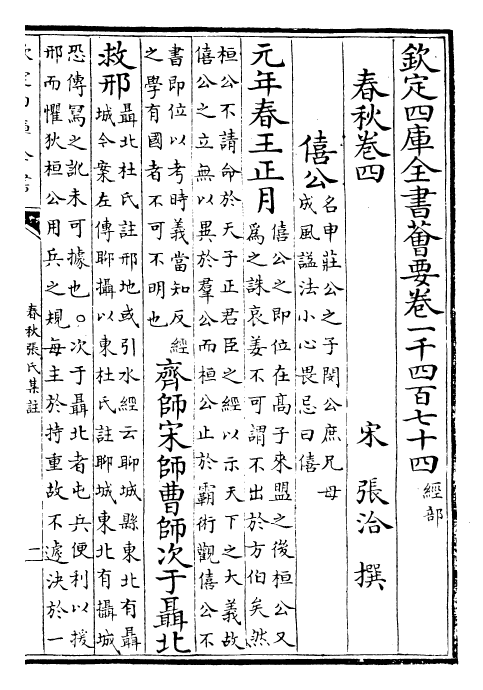 欽定四庫全書薈要卷一千四百七十四經部
春秋卷四
宋 張洽 撰
僖公名申莊公之子閔公庶兄母
成風謚法小心畏忌曰僖
元年春王正月僖公之即位在高子來盟之後桓公又
為之誅哀姜不可謂不出於方伯矣然
桓公不請命於天子正君臣之經以示天下之大義故
僖公之立無以異於羣公而桓公止於霸術觀僖公不
書即位以考時義當知反經
之學有國者不可不明也
齊師宋師曹師次于聶北
救邢聶北杜氏註邢地或引水經云聊城縣東北有聶
城今案左傳聊攝以東杜氏註聊城東北有攝城
恐傳寫之訛未可據也。次于聶北者屯兵便利以援
邢而懼狄桓公用兵之規每主於持重故不遽決於一
春秋張氏集註
二